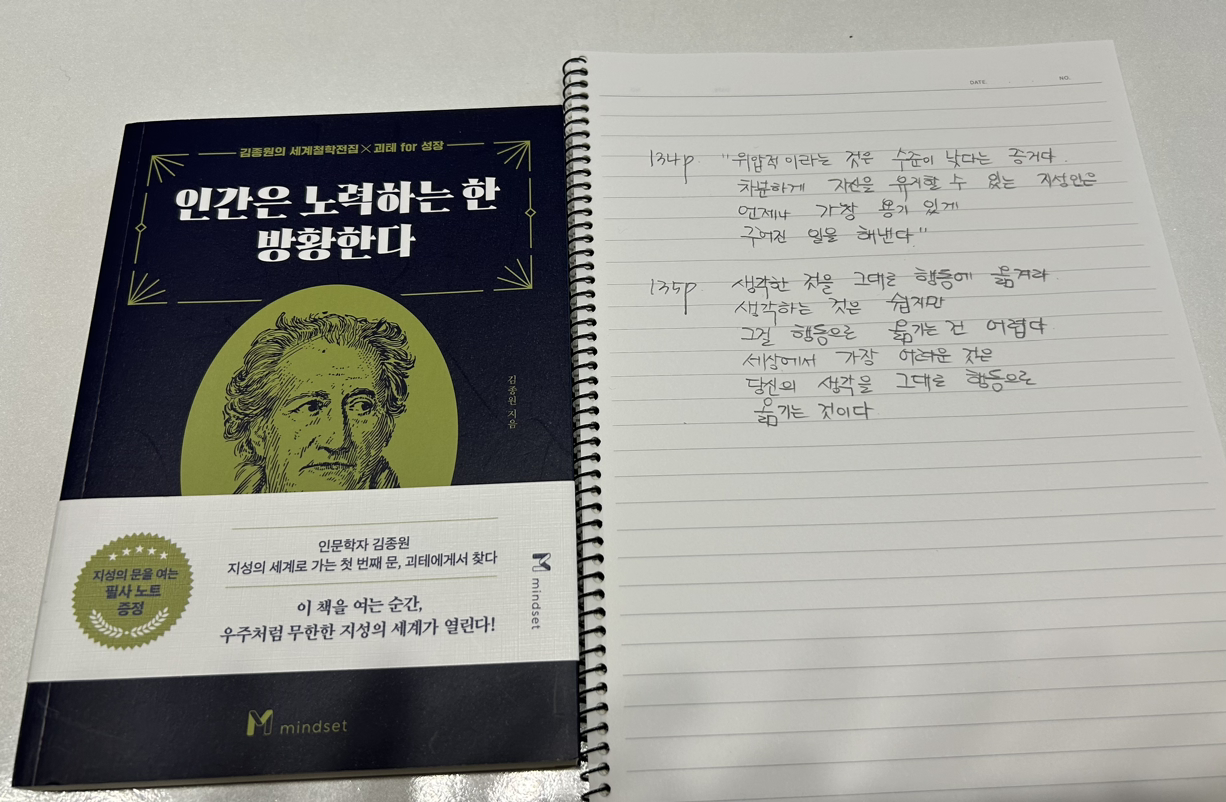 김종원의 세계철학전집×괴테 for 성장
인간은 노력하는 한
방황한다
김종원 지음
지성의 문을 여는
필사 노트
증정
인문학자 김종원
지성의 세계로 가는 첫 번째 문, 괴테에게서 찾다
이 책을 여는 순간,
우주처럼 무한한 지성의 세계가 열린다!
mindset
mindset
DATE. NO.
134p. "위압적이라는 것은 수준이 낮다는 증거다.
차분하게 자신을 유지할 수 있는 지성인은
언제나 가장 용기 있게
주어진 일을 해낸다"
135p 생각한 것을 그대로 행동에 옮겨라.
생각하는 것은 쉽지만
그걸 행동으로 옮기는 건 어렵다.
세상에서 가장 어려운 것은
당신의 생각을 그대로 행동으로
옮기는 것이다